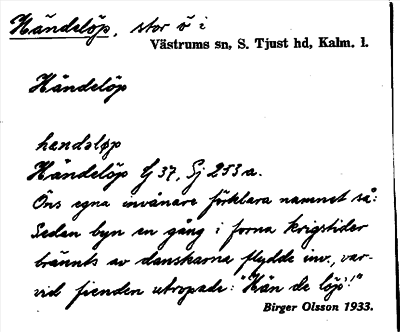 Händelöp, stor ö i
Västrums sn, S. Tjust hd, Kalm. l.
Händelöp
hændəløp
Händelöp G 37, Sj 253a.
Öns egna invånare förklara namnet så:
Sedan byn en gång i forna krigstider
bränts av danskarna flydde inv., var-
vid fienden utropade: "Hän de löp!"
Birger Olsson 1933.